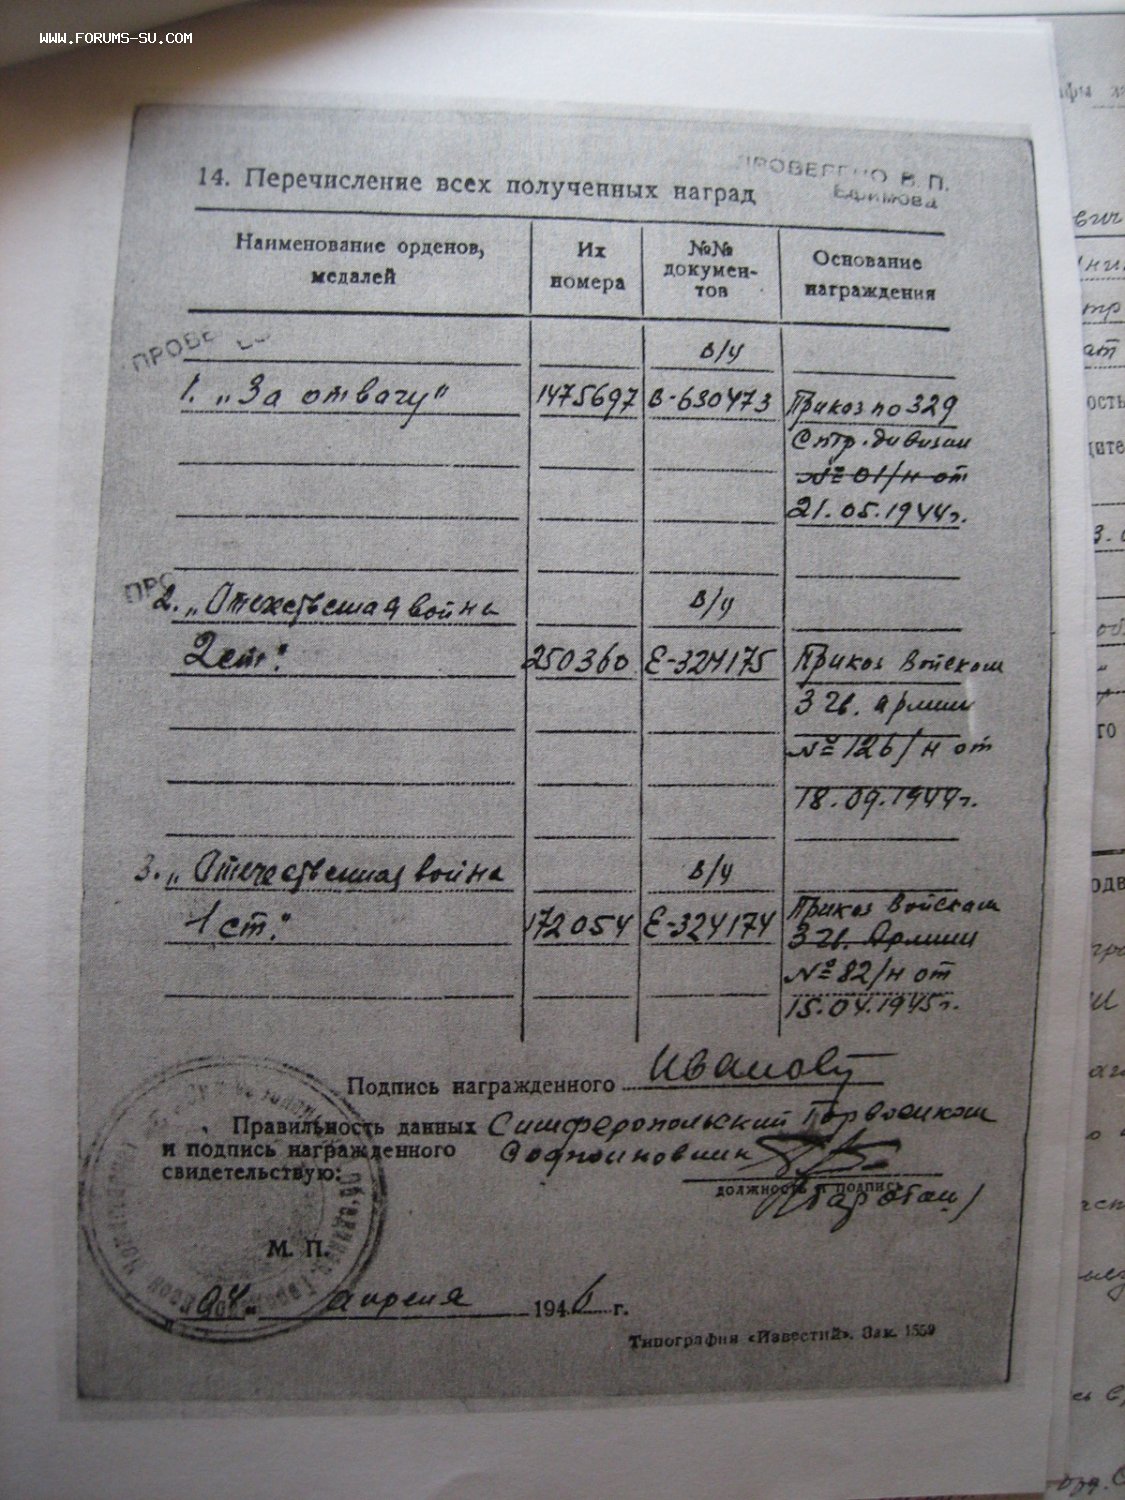 WWW.FORUMS-SU.COM
ПРОВЕРЕНО В. П.
Ефимова
14. Перечисление всех полученных наград
Наименование орденов, медалей
Их номера
№№ документов
Основание награждения
ПРОВЕ
в/у
1. „За отвагу" 1475697 В-630473 Приказ по 329
Стр. дивизии
№ 01/н от
21.05.1944г.
ПРО
2. „Отечественная война в/у
2 ст." 250360 Е-324175 Приказ войскам
3 гв. армии
№ 126/н от
18.09.1944г.
3. „Отечественная война в/у
1 ст." 172054 Е-324174 Приказ войскам
3 гв. Армии
№ 82/н от
15.04.1945г.
Подпись награжденного
Правильность данных Симферопольский Горвоенком
и подпись награжденного
свидетельствую:
должность и подпись
М. П.
апреля 1946 г.
Типография «Известий». Зак. 1559